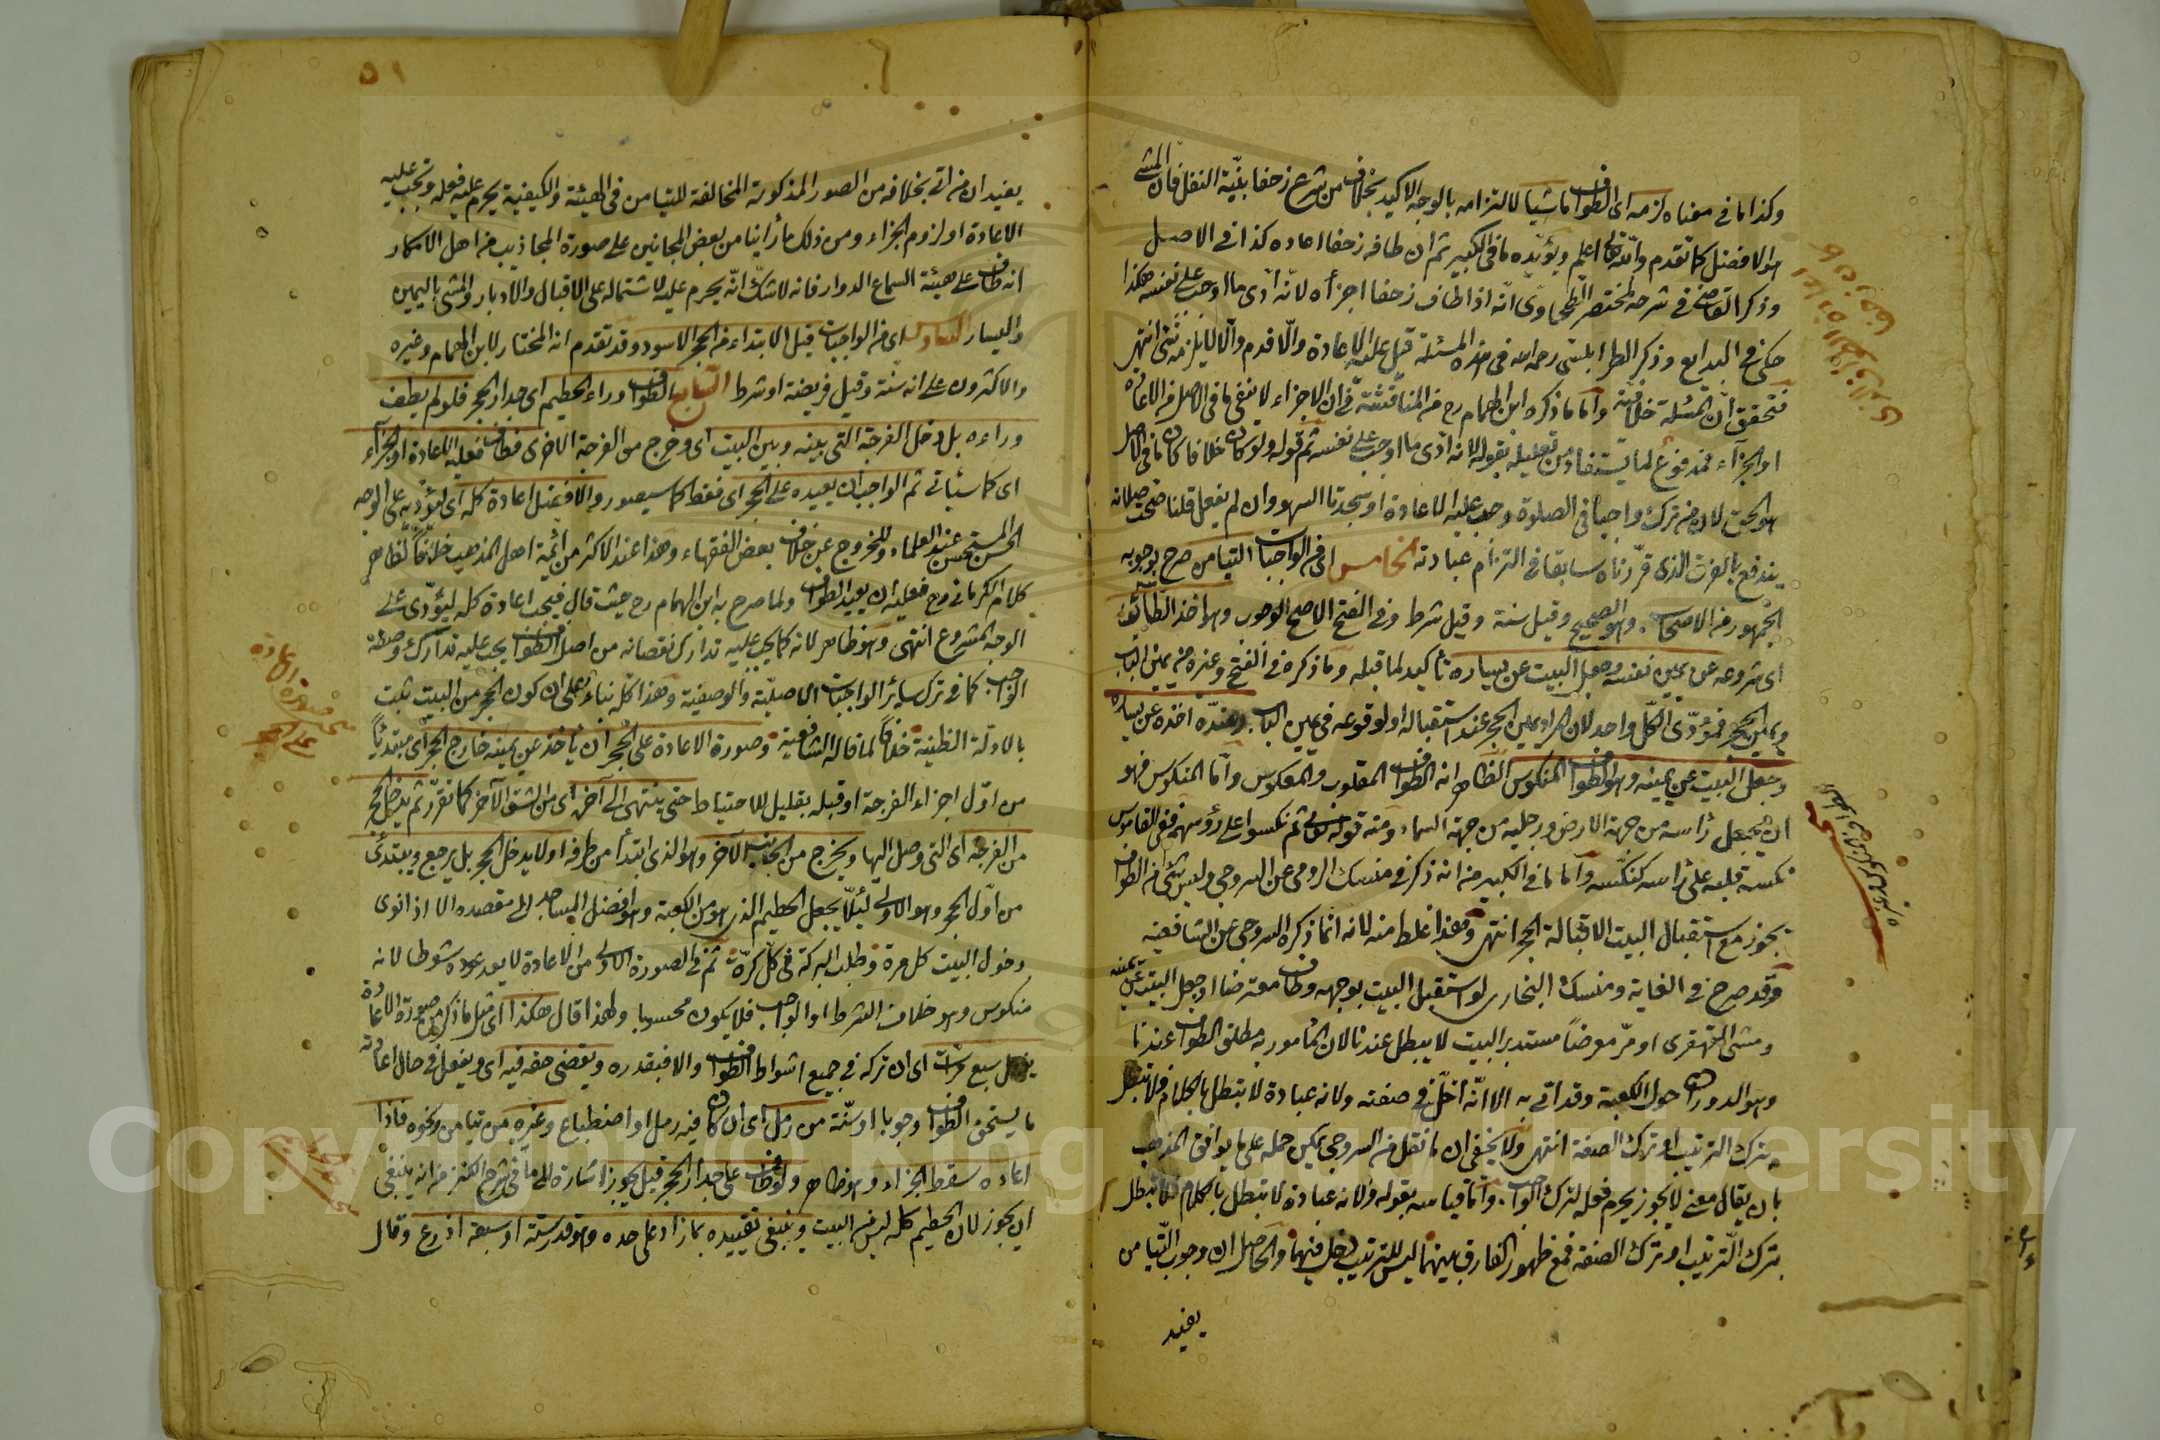 وكذا ما في معناه لزمه اى الطواف ماشيا لالتزامه بالوجه الاكيد بخلاف من شرع زحفا بنيّة النفل فان المشى
هو الافضل كما تقدم والله تعالى اعلم ويؤيّده ما في الكبير ثم ان طافه زحفا اعاده كذا في الاصل
وذكر القاضى في شرحه لمختصر الطحاوى انّه اذا طاف زحفا اجزأه لانّه ادّى ما اوجب على نفسه هكذا
حكى في البدايع وذكر الطرابلسى رحمه الله في هذه المسئلة قيل عليه الاعادة والّا فدم والّا لا يلزمه شئ انتهى
فتحقق انّ المسئلة خلافية واما ما ذكره ابن الهمام رح من المناقشة في ان الاجزاء لا ينفى ما في الاصل من الاعادة
او الجزاء فمدفوع لما يستفاد من تعليله بقوله لانه ادّى ما اوجب على نفسه ثم قوله ولو كان خلافا كان ما في الاصل
هو الحق لان من ترك واجبا في الصلوة وجب عليه الاعادة او سجدتا السهو وان لم يفعل قلنا صحّت صلاته
يندفع بالفرق الذى قرّرناه سابقا في التزام عبادته الخامس اى من الواجبات التيامن صرح بوجوبه
الجمهور من الاصحاب وهو الصحيح وقيل سنة وقيل شرط وفي الفتح الاصح الوجوب وهو اخذ الطائف
اى شروعه عن يمين نفسه وجعل البيت عن يساره تأكيد لما قبله وما ذكره في الفتح وغيره من يمين الباب
ويمين الحجر فمؤدّى الكل واحد لان المراد يمين الحجر عند استقباله او لوقوعه في يمين الباب وضدّه اخذه عن يساره
وجعل البيت عن يمينه وهو الطواف المنكوس الظاهر انه الطواف المقلوب والمعكوس وامّا المنكوس فهو
ان يجعل رأسه من جهة الارض ورجليه من جهة السماء ومنه قوله تعالى ثم نكسوا على رؤسهم ففى القاموس
نكسه قلبه على رأسه كنكّسه وامّا ما في الكبير من انه ذكر في منسك الرومى عن السروجى وليس شئ من الطواف
يجوز مع استقبال البيت الا قبالة الحجر انتهى فهذا غلط منه لانه انما ذكره السروجى عن الشافعية
وقد صرح في الغاية ومنسك البخارى لو استقبل البيت بوجهه وطاف معترضا او جعل البيت عن يمينه
ومشى القهقرى او مرّ معرضاً مستدبر البيت لا يبطل عندنا لان المأمور به مطلق الطواف عندنا
وهو الدوران حول الكعبة وقد اتى به الا انّه اخلّ في صفته ولانه عبادة لا تبطل بالكلام فلا تبطل
بترك الترتيب او ترك الصفة انتهى ولا يخفى ان ما نقل من السروجى يمكن حمله على ما يوافق المذهب
بان يقال معنى لا يجوز يحرم فعله لترك الواجب وامّا قياسه بقوله ولانه عبادة لا تبطل بالكلام فلا تبطل
بترك الترتيب او ترك الصفة فمع ظهور الفارق بينهما ليس للترتيب دخل فيهما والحاصل ان وجوب التيامن
يفيد
٥١
يفيد ان من اتى بخلافه من الصور المذكورة المخالفة للتيامن في الهيئة والكيفية يحرم عليه فعله وتجب عليه
الاعادة او لزوم الجزاء ومن ذلك ما رأينا من بعض المجانين على صورة المجاذيب من اهل الانكار
انه طاف على هيئة السماع الدوار فانه لا شك انّه يحرم عليه لاشتماله على الاقبال والادبار والمشى باليمين
واليسار السادس اى من الواجبات قيل الابتداء من الحجر الاسود وقد تقدم انه المختار لابن الهمام وغيره
والاكثرون على انه سنّة وقيل فريضة او شرط السابع الطواف وراء الحطيم اى جدار الحجر فلو لم يطف
وراءه بل دخل الفرجة التى بينه وبين البيت اى وخرج من الفرجة الاخرى فطاف فعليه الاعادة او الجزاء
اى كما سيأتى ثم الواجب ان يعيده على الحجر اى فقط كما سيصور والافضل اعادة كله اى ليؤديه على الوجه
الحسن المستحسن عند العلماء وللخروج عن خلاف بعض الفقهاء وهذا عند الاكثر من ائمة اهل المذهب خلافاً لظاهر
كلام الكرمانى رح فعليه ان يعيد الطواف ولما صرح به ابن الهمام رح حيث قال فيجب اعادة كله ليؤدّى على
الوجه المشروع انتهى وهو ظاهر لانه كما يجب عليه تدارك نقصانه من اصل الطواف يجب عليه تدارك وصفه
الواجب كما في ترك سائر الواجبات الاصليّة والوصفية وهذا كلّه بناء على ان كون الحجر من البيت ثبت
بالادلّة الظنية خلافاً لما قاله الشافعية وصورة الاعادة على الحجر ان يأخذ عن يمينه خارج الحجر اى مبتدئاً
من اوّل اجزاء الفرجة او قبله بقليل للاحتياط حتى ينتهى الى آخره اى من الشق الآخر كما تقرّر ثم يدخل الحجر
من الفرجة اى التى وصل اليها ويخرج من الجانب الآخر وهو الذى ابتدأ من طرفه او لا يدخل الحجر بل يرجع ويبتدئ
من اوّل الحجر وهو الاولى لئلّا يجعل الحطيم الذى هو من الكعبة وهو افضل المساجد الى مقصده الا اذا نوى
دخول البيت كل مرة وطلب البركة في كل كرّة ثم في الصورة الاولى من الاعادة لا يعد عوده شوطا لانه
منكوس وهو خلاف الشرط او الواجب فلا يكون محسوبا ولهذا قال هكذا اى مثل ما ذكر من صورة الاعادة
يفعل سبع مرّات اى ان تركه في جميع اشواط الطواف والا فبقدره ويقضى حقه فيه اى ويفعل في حال اعادته
ما يستحق الطواف وجوبا او سنّة من رمل اى ان كان فيه رمل او اضطباع وغيره من تيامن ونحوه فاذا
اعاده سقط الجزاء وهو ظاهر ولو طاف على جدار الحجر قيل يجوز اشارة الى ما في شرح الكنز من انه ينبغى
ان يجوز لان الحطيم كله ليس من البيت وينبغى تقييده بما زاد على حده وهو قدر ستة او سبعة اذرع وقال